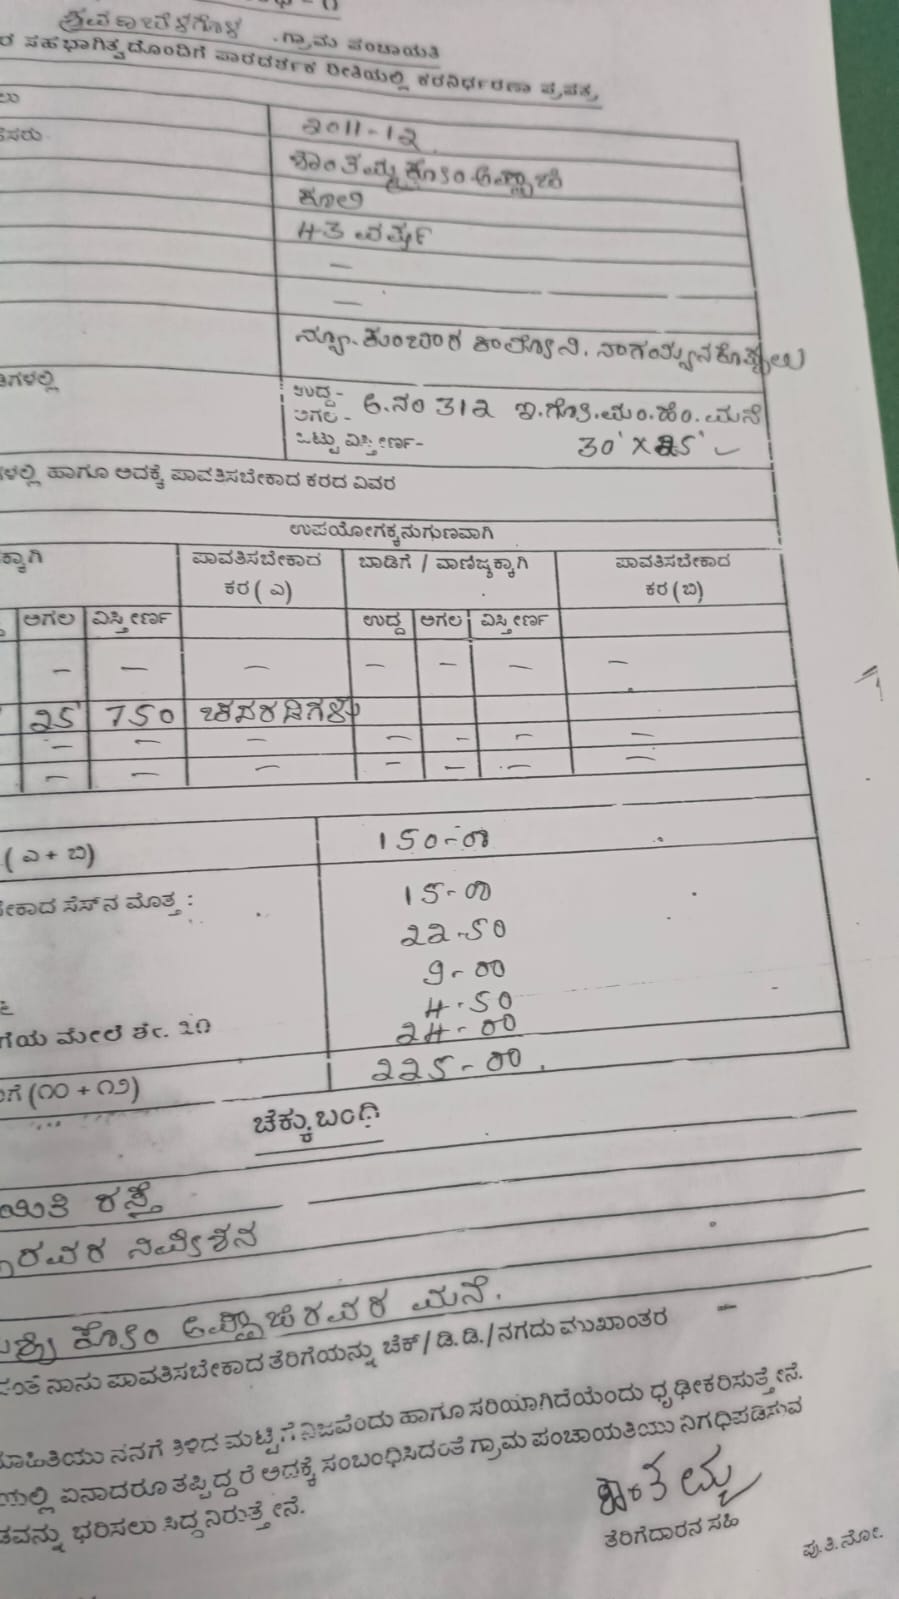 ಶ್ರವಣಬೆಳಗೊಳ . ಗ್ರಾಮ ಪಂಚಾಯತಿ
ರ ಸಹಭಾಗಿತ್ವದೊಂದಿಗೆ ಪಾರದರ್ಶಕ ರೀತಿಯಲ್ಲಿ ಕರನಿರ್ಧರಣಾ ಪ್ರಪತ್ರ
2011-12
ಹೆಸರು ಶಾಂತಮ್ಮ ಕೋಂ
ಕೂಲಿ
43 ವರ್ಷ
—
—
ನ್ಯೂ. ಕುಂಬಾರ ಕಾಲೋನಿ.
ಗಳಲ್ಲಿ ಉದ್ದ-
ಅಗಲ- ಅ.ನಂ 312 ಮನೆ
ಒಟ್ಟು ವಿಸ್ತೀರ್ಣ- 30' X 25'
ಗಳಲ್ಲಿ ಹಾಗೂ ಅದಕ್ಕೆ ಪಾವತಿಸಬೇಕಾದ ಕರದ ವಿವರ
ಉಪಯೋಗಕ್ಕನುಗುಣವಾಗಿ
ಕ್ಕಾಗಿ ಪಾವತಿಸಬೇಕಾದ ಕರ (ಎ) ಬಾಡಿಗೆ / ವಾಣಿಜ್ಯಕ್ಕಾಗಿ ಪಾವತಿಸಬೇಕಾದ ಕರ (ಬಿ)
ಅಗಲ ವಿಸ್ತೀರ್ಣ ಉದ್ದ ಅಗಲ ವಿಸ್ತೀರ್ಣ
— — — — — — —
25' 750 ಚದರಡಿಗಳು
— — — — — — —
— — — — — — —
(ಎ + ಬಿ) 150-00
ಬೇಕಾದ ಸೆಸ್‌ನ ಮೊತ್ತ : 15-00
22-50
9-00
4-50
ಗೆಯ ಮೇಲೆ ಶೇ. ೩೧ 24-00
ಗೆ (೧೦ + ೧೨) 225-00
ಚೆಕ್ಕುಬಂದಿ
ಯಿತಿ ರಸ್ತೆ
ರವರ ನಿವೇಶನ
ಕೋಂ ರವರ ಮನೆ.
ನಂತೆ ನಾನು ಪಾವತಿಸಬೇಕಾದ ತೆರಿಗೆಯನ್ನು ಚೆಕ್ / ಡಿ.ಡಿ. / ನಗದು ಮುಖಾಂತರ —
ಮಾಹಿತಿಯು ನನಗೆ ತಿಳಿದ ಮಟ್ಟಿಗೆ ನಿಜವೆಂದು ಹಾಗೂ ಸರಿಯಾಗಿದೆಯೆಂದು ಧೃಢೀಕರಿಸುತ್ತೇನೆ.
ಯಲ್ಲಿ ಏನಾದರೂ ತಪ್ಪಿದ್ದರೆ ಅದಕ್ಕೆ ಸಂಬಂಧಿಸಿದಂತೆ ಗ್ರಾಮ ಪಂಚಾಯತಿಯು ನಿಗಧಿಪಡಿಸುವ
ಡವನ್ನು ಭರಿಸಲು ಸಿದ್ದನಿರುತ್ತೇನೆ.
ಶಾಂತಮ್ಮ
ತೆರಿಗೆದಾರನ ಸಹಿ
ಪು.ತಿ.ನೋ.